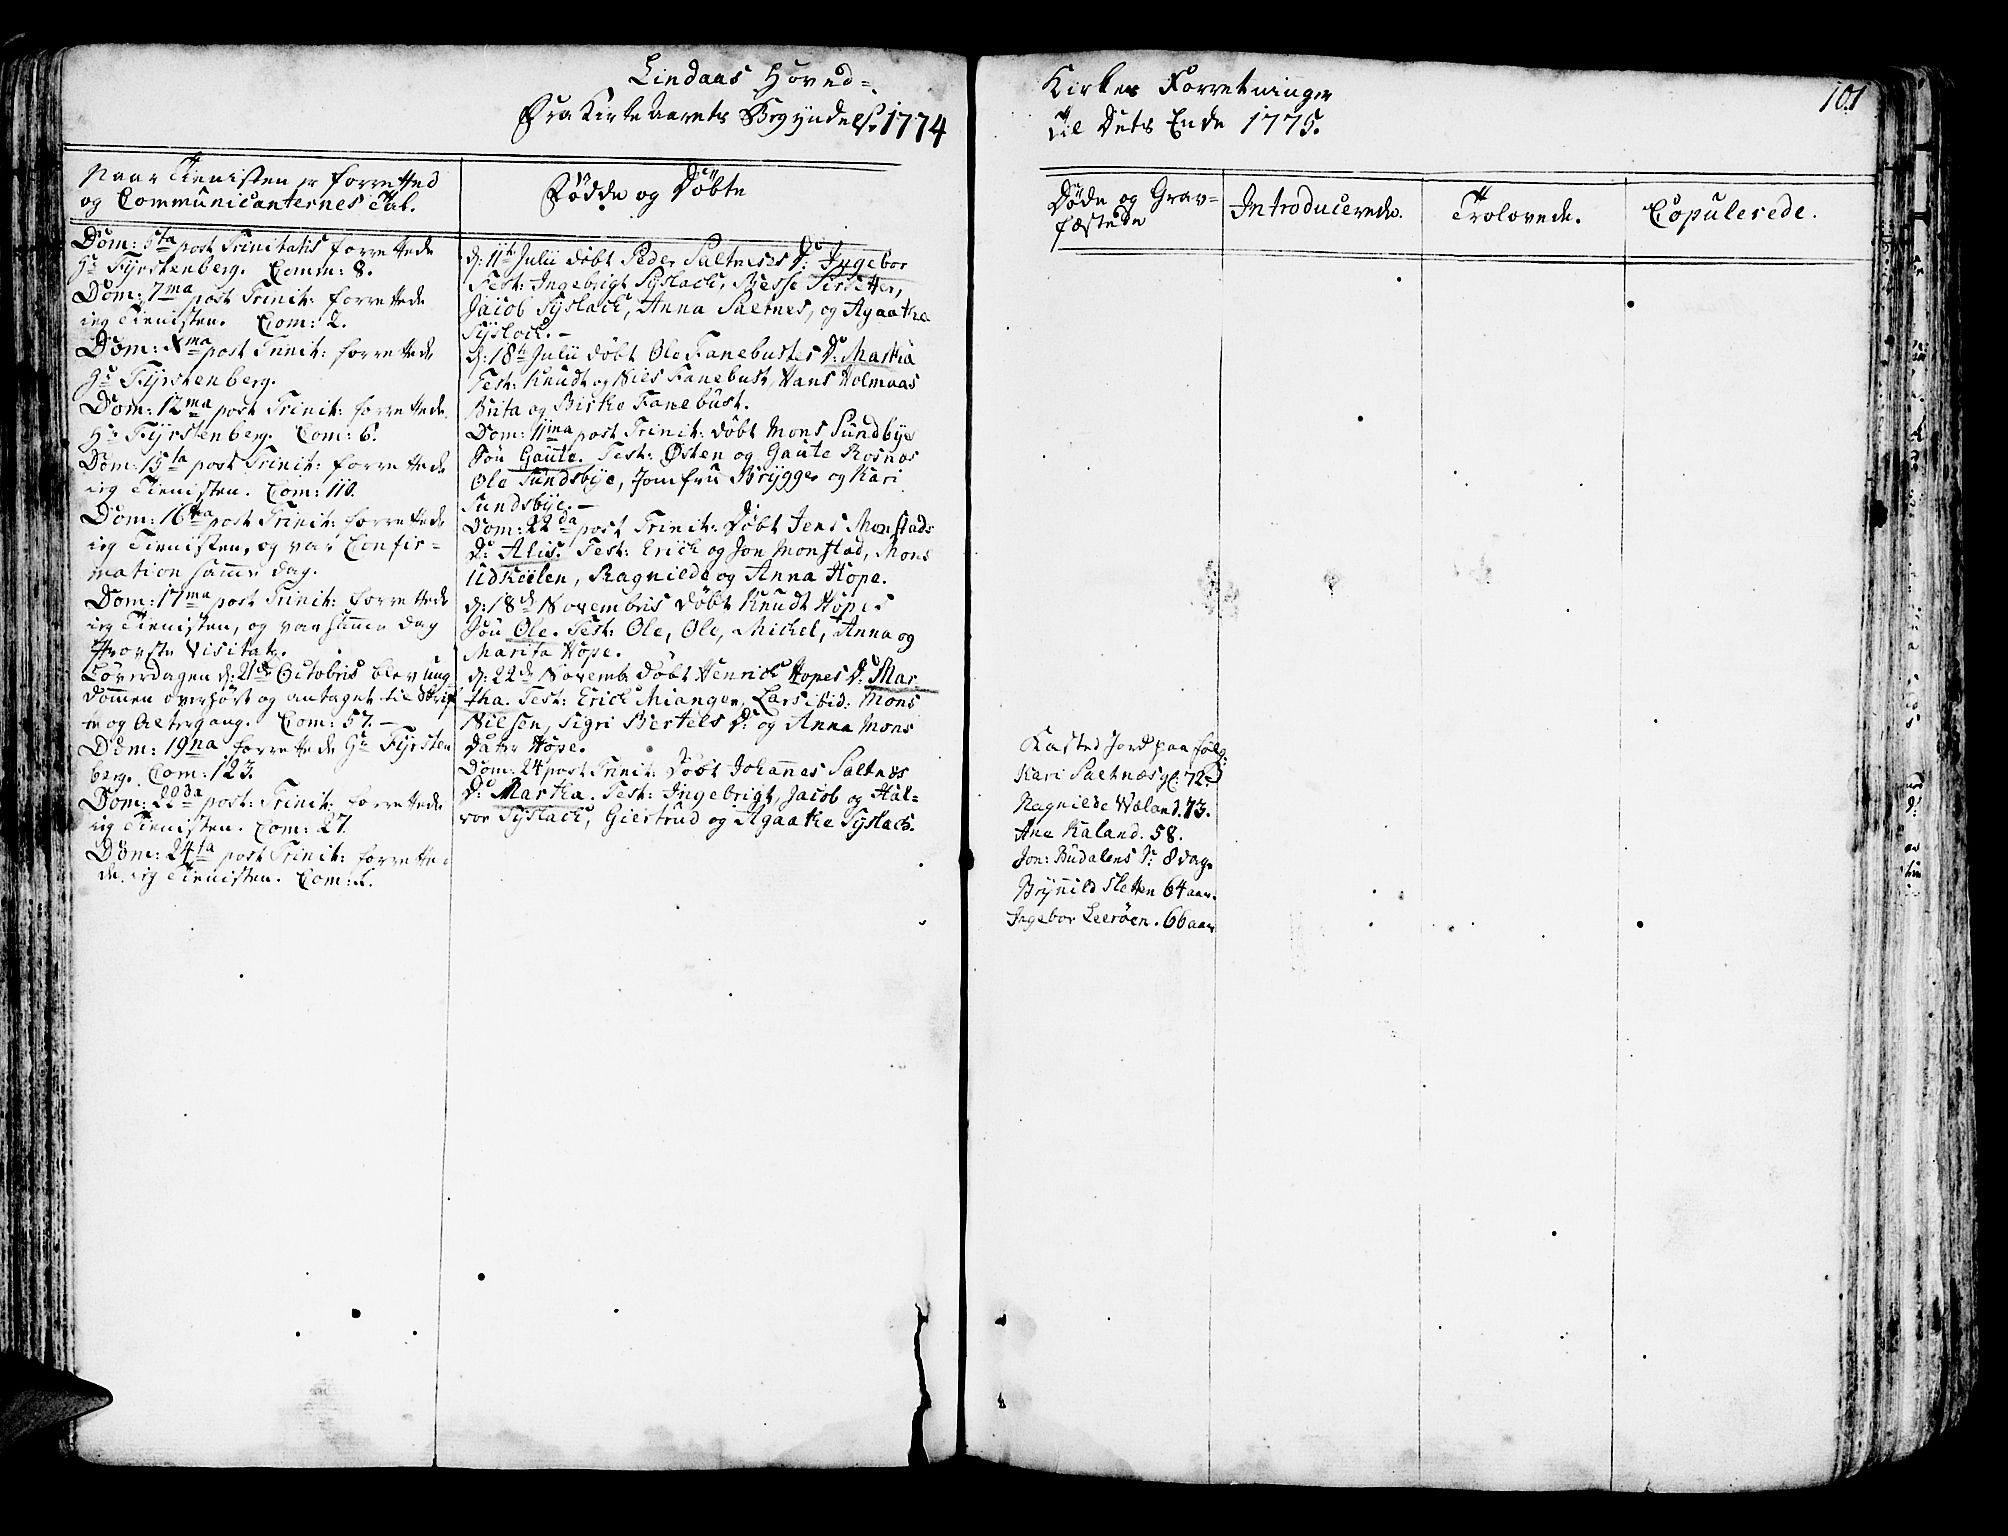 Lindaas Hoved=
Fra Kirke Aarets Begyndelse 1774
Naar Tienisten er forretted
og Communicanternes Tal.
Fødde og Døbte
Dom: 5ta post Trinitatis forrettede
Hr Fyrstenberg. Comm: 8.
Dom: 7ma post Trinit: forrettede
ieg Tienisten. Com: 2.
Dom: Xma post Trinit: forrettede
Hr Fyrstenberg.
Dom: 12ma post Trinit: forrettede
Hr Fyrstenberg. Com: 6.
Dom: 15ta post Trinit: forrettede
ieg Tienisten. Com: 110.
Dom: 16ta post Trinit: forrettede
ieg Tienisten, og var Confir=
mation samme dag.
Dom: 17ma post Trinit: forrettede
ieg Tienisten, og var samme dag
Provste Visitatz.
Løverdagen d: 21de Octobris blev ung
dommen overhørt og antaget til Skrif
te og Altergang. Com: 57. –
Dom: 19na forrettede Hr Fyrsten
berg. Com: 123.
Dom: 22da post: Trinit: forrettede
ieg Tienisten. Com: 27.
Dom: 24ta post Trinit: forrette
de ieg Tienisten. Com:
d: 11te Julii døbt Peder Saltneses D: Ingebor
Test: Ingebrigt Syslack, Besse
Jacob Syslack, Anna Saltnes, og Agaathe
Syslack. –
d: 18de Julii døbt Ole Fanebustes D: Martha
Test: Knudt og Niels Fanebust, Hans Holmaas
Brita og Birthe Fanebust.
Dom: 11ma post Trinit: døbt Mons Sundbyes
Søn Gaute. Test: Østen og Gaute Rosnæs
Ole Sundsbye, Jomfru Brygger og Kari
Sundsbye. –
Dom: 22da post Trinit: Døbt Jens Monstads
D: Alis. Test: Erich og Jon Monstad, Mons
Udkiilen, Ragnilde og Anna Hope.
d: 18de Novembris døbt Knudt Hopes
Søn Ole. Test: Ole, Ole, Michel, Anna og
Marita Hope.
d: 22de Novemb: døbt Henrich Hopes D: Mar
tha. Test: Erich Mianger, Lars ibid: Mons
Nilsen, Sigri Bertels D: og Anna Mons
Dater Hope.
Dom: 24 post Trinit: Døbt Johannes Saltnæs
D: Martha. Test: Ingebrigt, Jacob og Hal=
vor Syslack, Giertrud og Agaathe Syslach.
Kirkes Forretninger
Til Dets Ende 1775.
101
Døde og Grav=
fæstede
Introducerede.
Trolovede.
Copulerede.
Kasted Jord paa følg:
Kari Saltnæs gl: 72.
Ragnilde Wæland. 73.
Ane Kaland. 58.
Jon: Budalens S: 8 dage
Brynild Sletten 64 aar.
Ingebor Leerøen. 66 aar